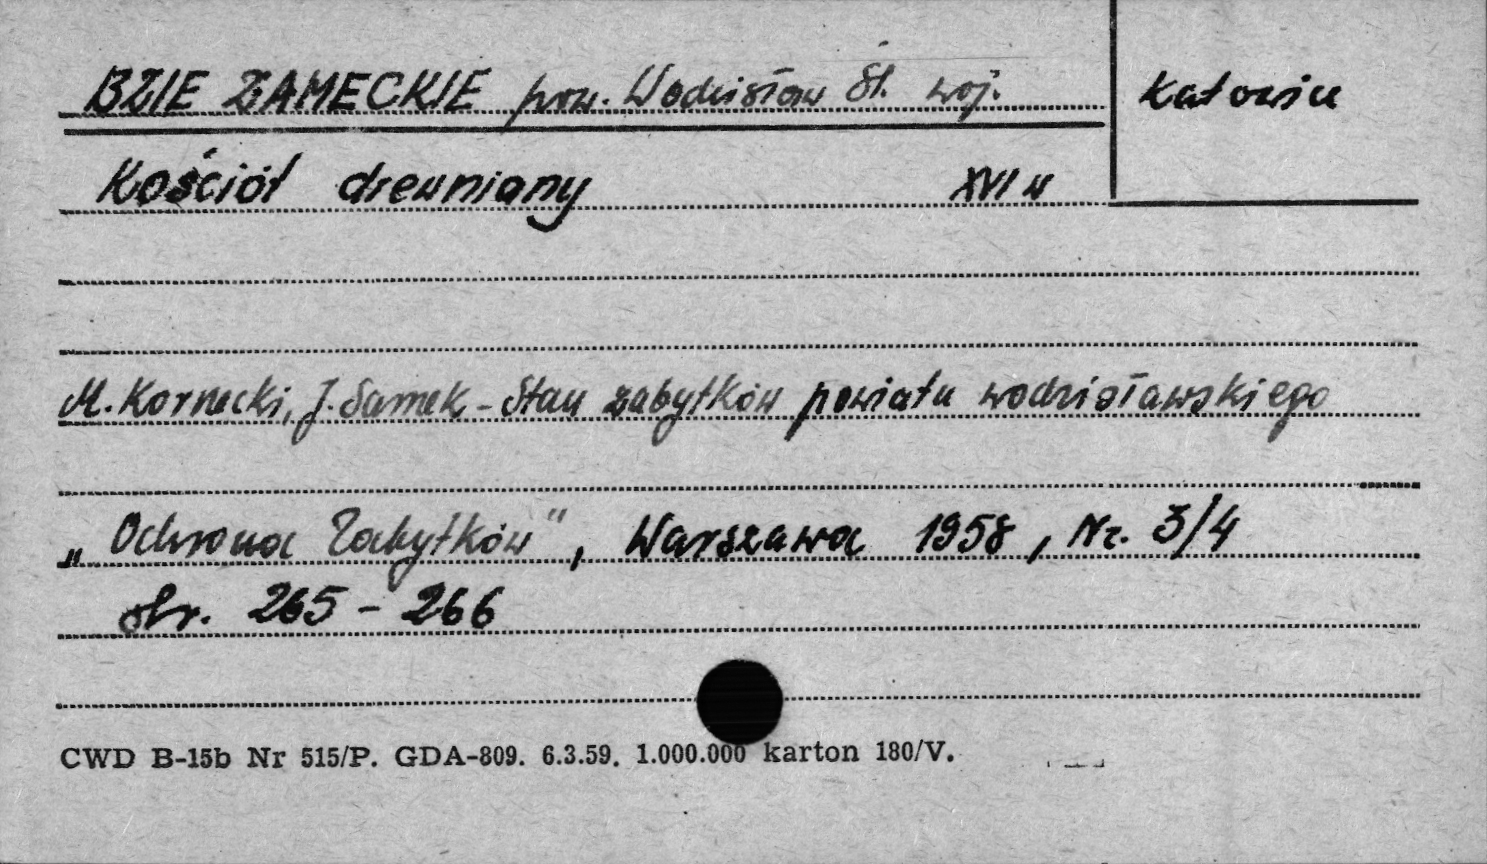 BZIE ZAMECKIE pow. Wodzisław Śl. woj. Katowice
Kościół drewniany XVI w
M. Kornecki, J. Samek - Stan zabytków powiatu wodzisławskiego
„Ochrona Zabytków", Warszawa 1958, Nr. 3/4
str. 265 - 266
CWD B-15b Nr 515/P. GDA-809. 6.3.59. 1.000.000 karton 180/V.